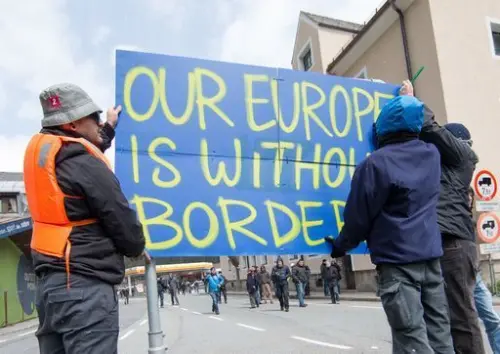 OUR EUROPE
IS WITHOU
BORDER